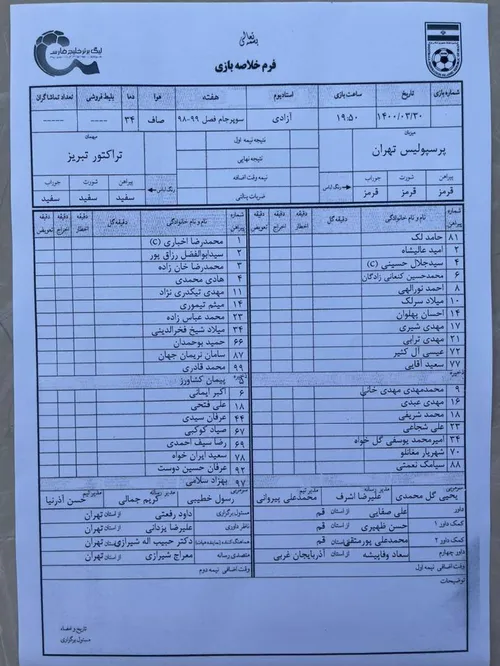 بسمه تعالی
لیگ برتر خلیج فارس
فرم خلاصه بازی
شماره بازی تاریخ ساعت بازی استادیوم هفته هوا دما بلیط فروشی تعداد تماشاگران
۱۴۰۰/۰۳/۳۰ ۱۹:۵۰ آزادی سوپرجام فصل ۹۹-۹۸ صاف ۳۴ ----- -----
میزبان نتیجه نیمه اول میهمان
پرسپولیس تهران نتیجه نهایی تراکتور تبریز
پیراهن شورت جوراب نیمه وقت اضافه پیراهن شورت جوراب
قرمز قرمز قرمز رنگ لباس ضربات پنالتی رنگ لباس سفید سفید سفید
شماره پیراهن نام و نام خانوادگی دقیقه گل دقیقه اخطار دقیقه اخراج دقیقه تعویض
۸۱ حامد لک
۲ امید عالیشاه
۴ سیدجلال حسینی (C)
۶ محمدحسین کنعانی زادگان
۸ احمد نورالهی
۱۰ میلاد سرلک
۱۴ احسان پهلوان
۱۷ مهدی شیری
۲۱ مهدی ترابی
۷۲ عیسی آل کثیر
۷۷ سعید آقایی
ذخیره
۹ محمدمهدی مهدی خانی
۱۶ مهدی عبدی
۱۸ محمد شریفی
۲۳ علی شجاعی
۳۴ امیرمحمد یوسفی گل خواه
۷۰ شهریار مغانلو
۸۸ سیامک نعمتی
شماره پیراهن نام و نام خانوادگی دقیقه گل دقیقه اخطار دقیقه اخراج دقیقه تعویض
۱ محمدرضا اخباری (C)
۲ سیدابوالفضل رزاق پور
۳ محمدرضا خان زاده
۴ هادی محمدی
۱۱ مهدی تیکدری نژاد
۱۴ میثم تیموری
۲۳ محمد عباس زاده
۳۴ میلاد شیخ فخرالدینی
۶۶ حمید بوحمدان
۸۷ سامان نریمان جهان
۹۹ محمد قادری
۵ پیمان کشاورز
۶ اکبر ایمانی
۱۸ علی فتحی
۴۴ عرفان سیدی
۶۷ صیاد کوکبی
۶۹ رضا سیف احمدی
۷۸ سعید ایران خواه
۹۲ عرفان حسین دوست
۹۷ بهزاد سلامی
سرمربی مدیر رسانه مدیر تیم سرمربی مدیر رسانه مدیر تیم
یحیی گل محمدی علیرضا اشرف محمدعلی پیروانی رسول خطیبی کریم جمالی حسن آذرنیا
داور علی صفایی از استان قم مسئول برگزاری داود رفعتی از استان تهران
کمک داور ۱ حسن ظهیری از استان قم ناظر داوری علیرضا یزدانی از استان تهران
کمک داور ۲ محمدعلی پورمتقی از استان قم هماهنگ کننده دکتر حبیب اله شیرازی از استان تهران
داور چهارم سعاد وفاپیشه از استان آذربایجان غربی متصدی رسانه معراج شیرازی از استان تهران
وقت اضافی نیمه اول وقت اضافی نیمه دوم
توضیحات
تاریخ و امضاء
مسئول برگزاری